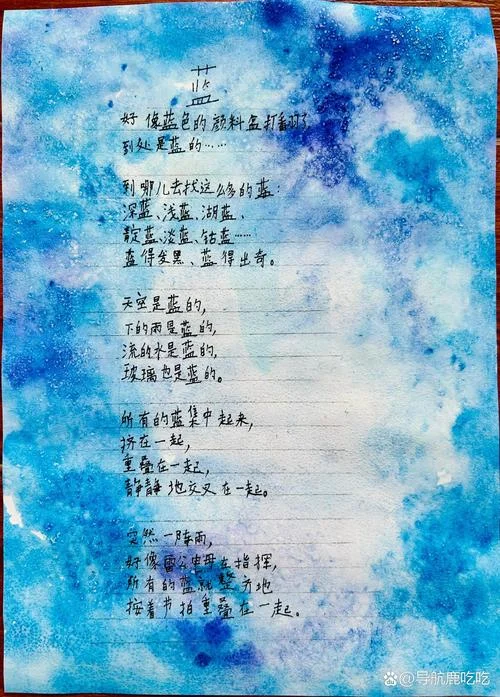 蓝
好像蓝色的颜料盒打翻了
到处是蓝的……
到哪儿去找这么多的蓝:
深蓝、浅蓝、湖蓝、
靛蓝、淡蓝、钴蓝……
蓝得发黑、蓝得出奇。
天空是蓝的,
下的雨是蓝的,
流的水是蓝的,
玻璃也是蓝的。
所有的蓝集中起来,
挤在一起,
重叠在一起,
静静地交叉在一起。
突然一阵雨,
好像雷公电母在指挥,
所有的蓝就整齐地
按着节拍重叠在一起。
导航鹿吃吃